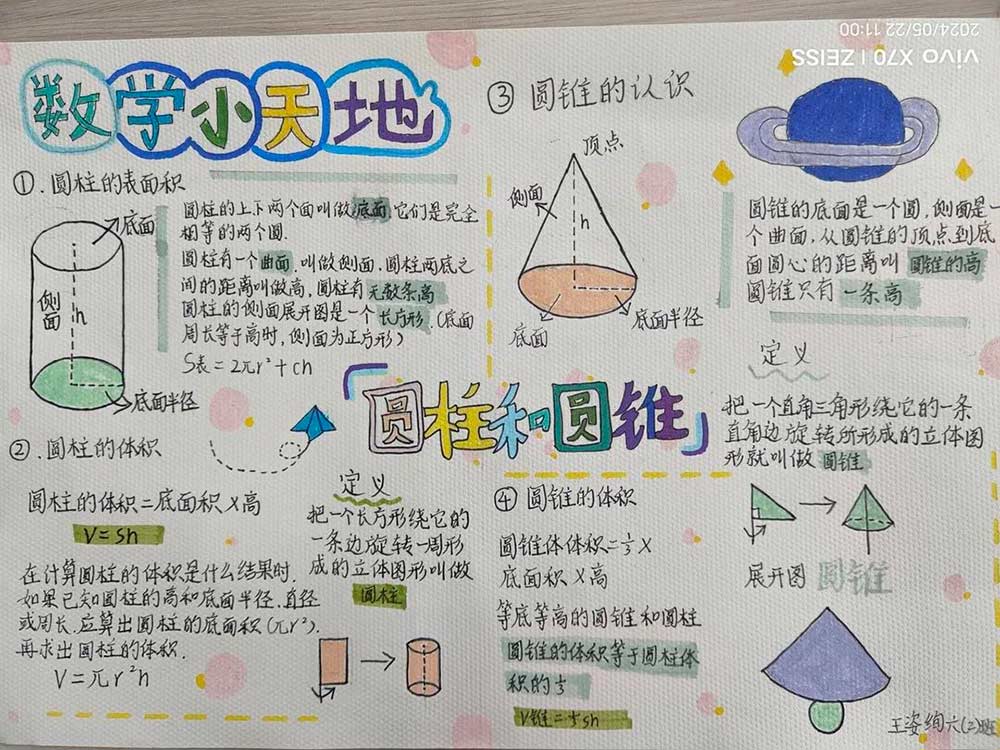 数学小天地
①.圆柱的表面积
底面
侧面
h
底面半径
圆柱的上下两个面叫做底面,它们是完全
相等的两个圆.
圆柱有一个曲面,叫做侧面,圆柱两底之
间的距离叫做高,圆柱有无数条高
圆柱的侧面展开图是一个长方形.(底面
周长等于高时,侧面为正方形)
S表=2πr²+ch
②.圆柱的体积
圆柱的体积=底面积×高
V=sh
在计算圆柱的体积是什么结果时.
如果已知圆柱的高和底面半径.直径
或周长.应算出圆柱的底面积(πr²).
再求出圆柱的体积.
V=πr²h
定义
把一个长方形绕它的
一条边旋转一周形
成的立体图形叫做
圆柱
圆柱和圆锥
③ 圆锥的认识
顶点
侧面
h
底面
底面半径
圆锥的底面是一个圆,侧面是一
个曲面,从圆锥的顶点到底
面圆心的距离叫圆锥的高
圆锥只有一条高
定义
把一个直角三角形绕它的一条
直角边旋转所形成的立体图
形就叫做圆锥
④ 圆锥的体积
圆锥体体积=1/3×
底面积×高
等底等高的圆锥和圆柱
圆锥的体积等于圆柱体
积的1/3
V锥=1/3sh
展开图 圆锥
王姿绚六(2)班
vivo X70 | ZEISS
2024/05/22 11:00